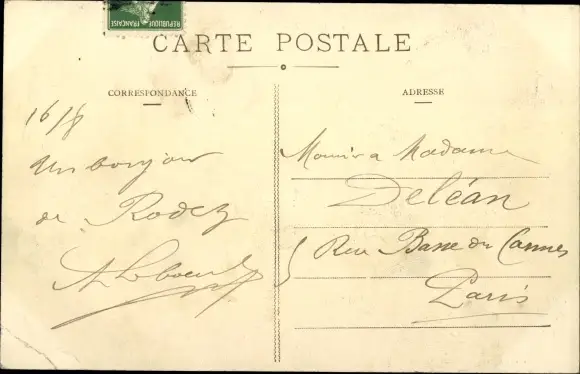 REPUBLIQUE FRANÇAISE
CARTE POSTALE
CORRESPONDANCE
16/8
Un bonjour
de Rodez
A Leboeuf
ADRESSE
Madame
Deléan
5 Rue Basse du Carmes
Paris